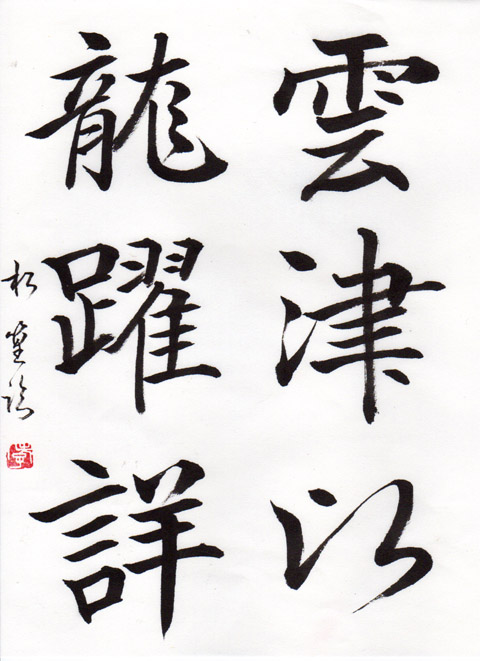 雲津以
龍躍詳